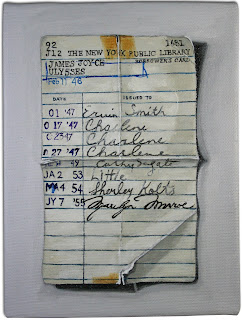 92 1651
J12 THE NEW YORK PUBLIC LIBRARY
JAMES JOYCE BORROWER'S CARD
ULYSSES
DATE ISSUED TO
01 '47 Erwin Smith
0 17 '47 Charlene
0 23 47 Charlene
27 '47 Charlene
'49
JA 2 53 Little
4 54 Sherley Kolts
JY 7 '55 Marilyn Monroe